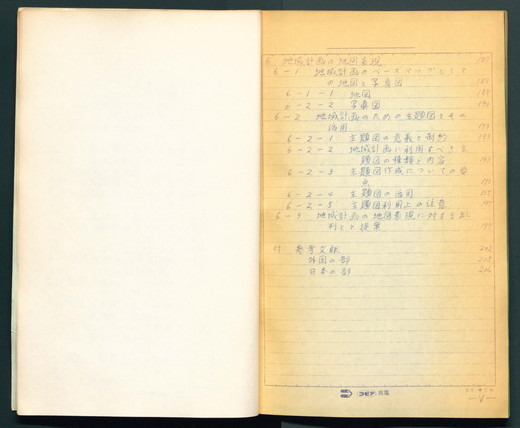 6 地域計画と地図表現 187
6-1 地域計画のベースマップとして
の地図と写真図 188
6-1-1 地図 188
6-2-2 写真図 190
6-2 地域計画のための主題図とその
活用 193
6-2-1 主題図の意義と制約 193
6-2-2 地域計画に利用すべき主
題図の種類と内容 193
6-2-3 主題図作成についての要
点 195
6-2-4 主題図の活用
6-2-5 主題図利用上の注意 197
6-3 地域計画の地図表現に対する批
判と提案 199
付 参考文献 202
外国の部 203
日本の部 206
コピア
-V-